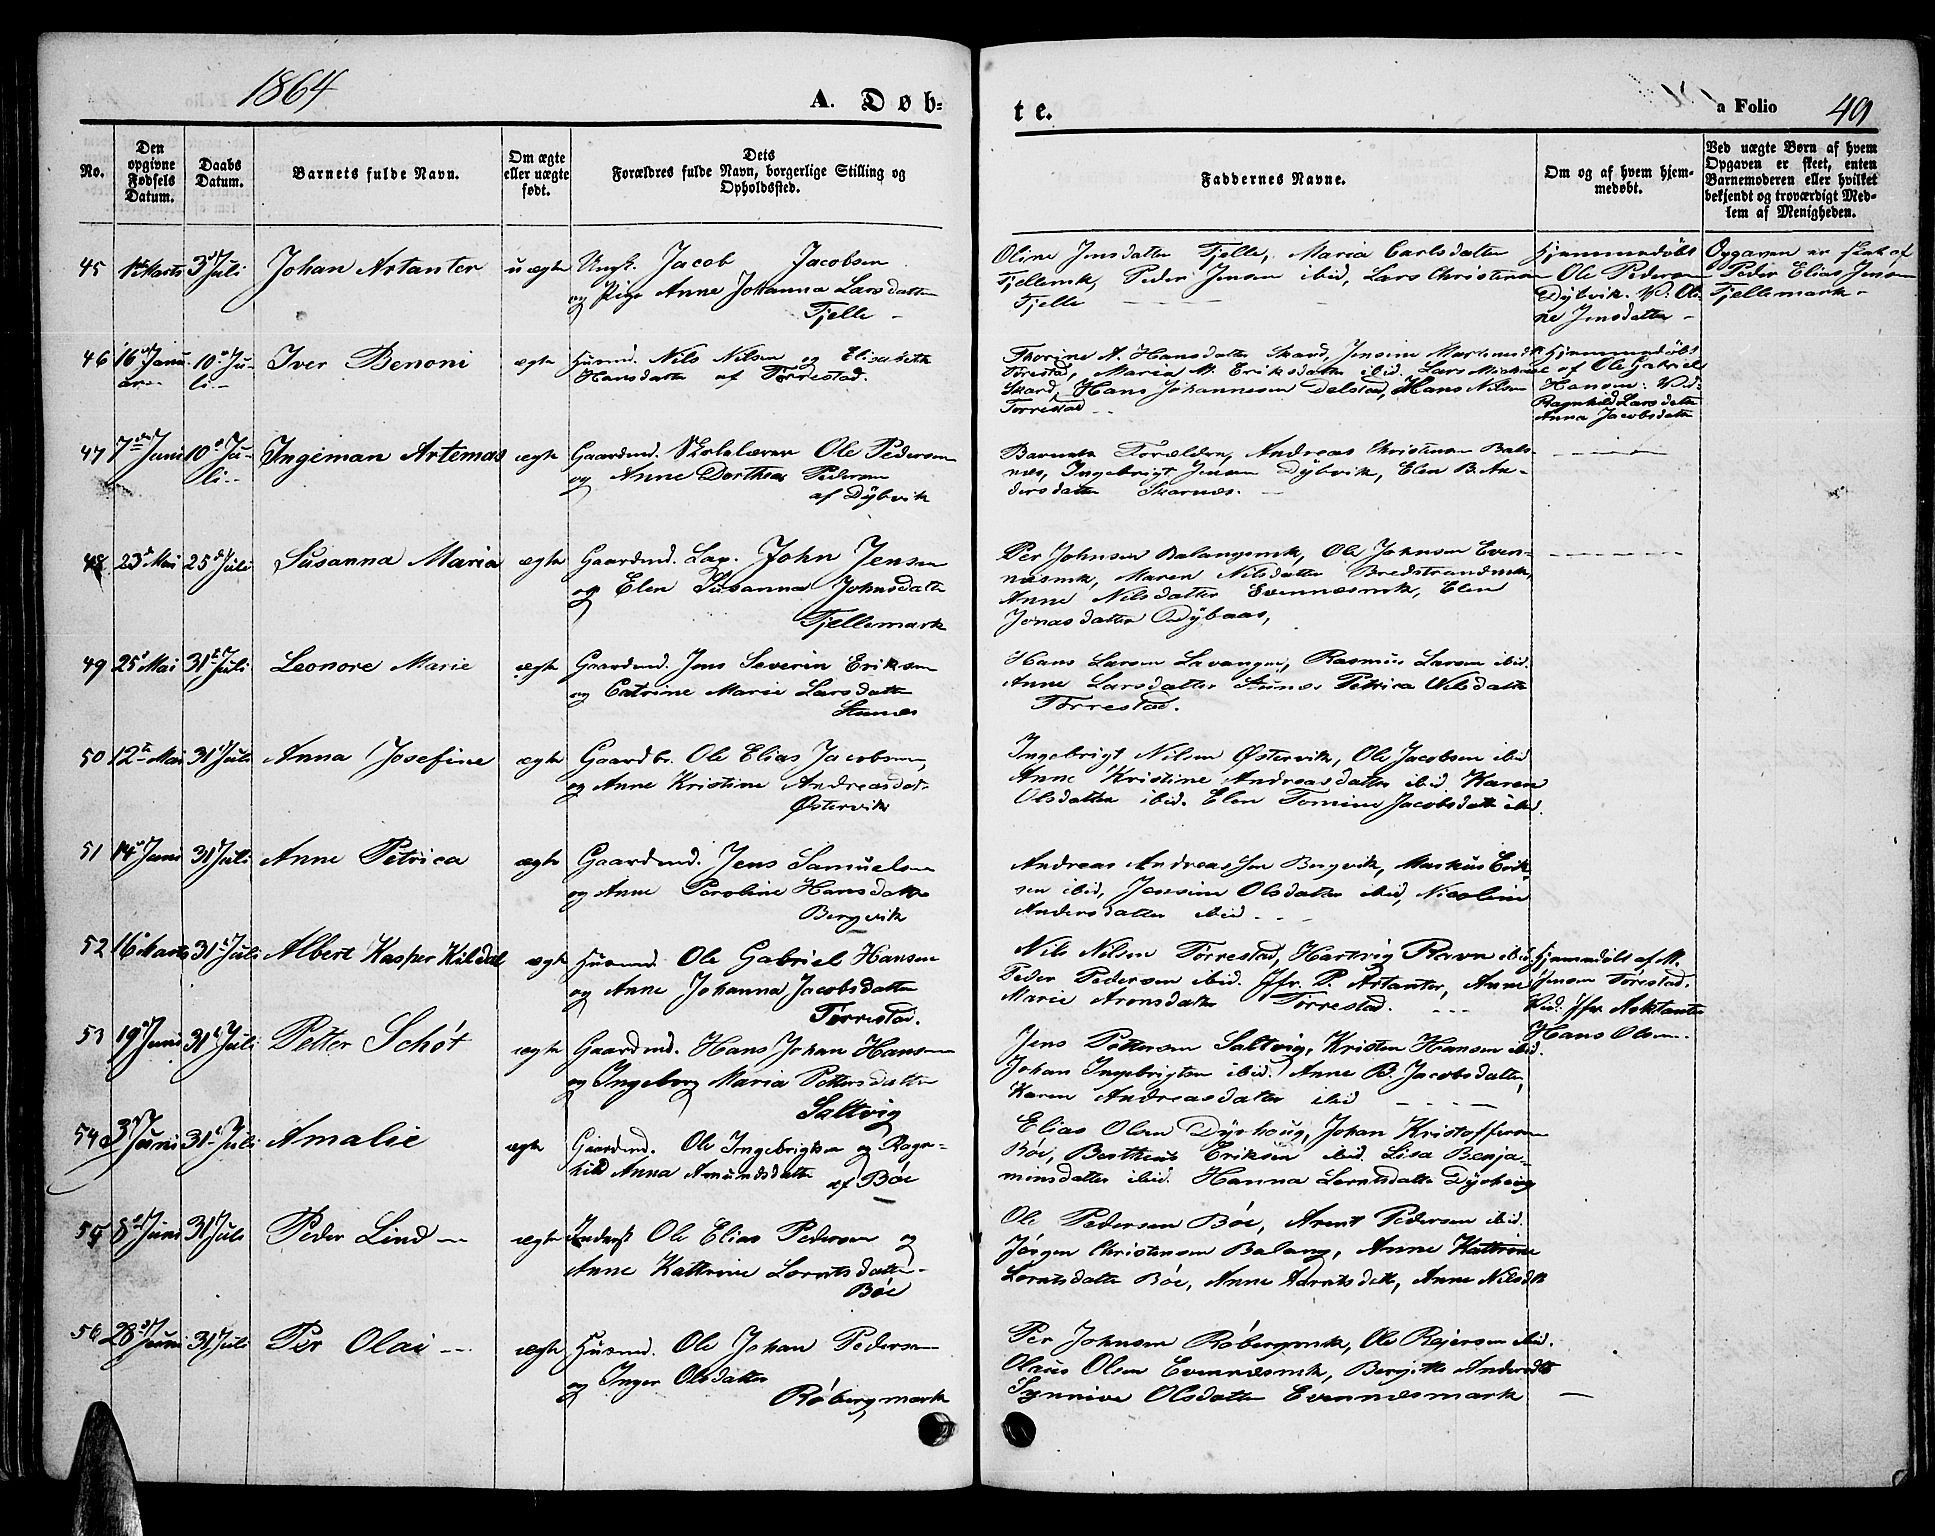 1864
A. Døb-
te.
a Folio 49
No.
Den opgivne Fødsels Datum.
Daabs Datum.
Barnets fulde Navn.
Om ægte eller uægte født.
Dets Forældres fulde Navn, borgerlige Stilling og Opholdssted.
Faddernes Navne.
Om og af hvem hjem-
medøbt.
Ved uægte Børn af hvem
Opgaven er skeet, enten
Barnemoderen eller hvilket
bekjendt og troværdigt Med-
lem af Menigheden.
45 1ste Marts 3 Juli Johan Artanter uægte Ungk. Jacob Jacobsen
og Pige Anne Johanna Larsdatter
Fjelle -
Oline Jensdatter Fjelle, Maria Carlsdatter
Fjellemk, Peder Jensen ibid, Lars Christensen
Fjelle
Hjemmedøbt
Ole Pedersen
Dÿbvik. V: Oli-
ne Jensdatter -
Opgaven er skét af
Peder Elias Jensen
Fjellemark -
46 16 Janu-
ar 10 Ju-
li Iver Benoni ægte Husmd. Nils Nilsen og Elisabeth
Hansdatter af Tørrestad.
Thorine A. Hansdatter Skard, Jensine Martinusdtr
Tørrestad, Maria M. Eriksdatter ibid. Lars Mickme
Skard, Hans Johannesen Delstad, Hans Nilsen
Tørrestad
Hjemmedøbt
af Ole Gabriel
Hansen: Vd:
Ragnhild Larsdatter
Anna Jacobsdatter
47 7de Juni 10 Ju-
li Ingeman Artemas ægte Gaardmd. Skolelærer Ole Pedersen
og Anne Dorthea Pedersen
af Dÿbvik
Barnets Forældre, Andreas Christensen Bals-
næs, Ingebrigt Jensen Dÿbvik, Elen B. An-
dersdatter Skarnæs.
48 23 Mai 25 Juli Susanna Maria ægte Gaardmd. Lap. John Jensen
og Elen Susanna Johnsdatter
Fjellemark
Per Johnsen Balangsmk, Ole Johnsen Even-
næsmk, Maren Nilsdatter Bredstrandmk,
Anne Nilsdatter Evennæsmk, Elen
Jonasdatter Dÿbaas,
49 25 Mai 31 Juli Leonore Marie ægte Gaardmd. Jens Severin Eriksen
og Catrine Marie Larsdatter
Stunes
Hans Larsen Lavangen, Rasmus Larsen ibid.
Anne Larsdatter Stunes Petrica Nilsdatter
Tørrestad.
50 12te Mai 31 Juli Anna Josefine ægte Gaardbr. Ole Elias Jacobsen,
og Anne Kristine Andreasdatr
Østervik
Ingebrigt Nilsen Østervik, Ole Jacobsen ibid
Anne Kristine Andreasdatter ibid. Karen
Olsdatter ibid. Elen Tomine Jacobsdatter ibid.
51 14 Juni 31 Juli Anne Petrica ægte Gaardmd. Jens Samuelsen
og Anne Peroline Hansdatter
Bergvik
Andreas Andreassen Bergvik, Markus Erik-
sen ibid, Jensine Olsdatter ibid, Nicoline
Andersdatter ibid
52 16 Marts 31 Juli Albert Kasper Kildal ægte Husmd. Ole Gabriel Hansen
og Anne Johanna Jacobsdatter
Tørrestad.
Nils Nilsen Tørrestad, Hartvig Ravn ibid.
Peder Pedersen ibid. Jfr. P. Artanter, Anne
Marie Aronsdatter Tørrestad.
Hjemmedøbt af M.
Jensen Tørestad.
Vid: Jfr Arktanter
Hans Olsen
53 19 Juni 31 Juli Petter Schøt ægte Gaardmd. Hans Johan Hansen
og Ingeborg Maria Pettersdatter
Saltvig
Jens Pettersen Saltvig, Kristen Hansen ibid.
Johan Ingebrigtsen ibid. Anne B. Jacobsdatter,
Karen Andreasdatter ibid
54 3 Juni 31 Juli Amalie ægte Gaardmd. Ole Ingebrigtsen og Ragn-
hild Anna Amundsdatter
af Bøe
Elias Olsen Dÿrhaug, Johan Kristoffersen
Bøe, Bertheus Eriksen ibid. Lisa Benja-
minsdatter ibid. Hanna Lorntsdatter Dÿrhoug
55 8 Juni 31 Juli Peder Lind ægte Inderst Ole Elias Pedersen og
Anne Kattrine Lorntsdatter
Bøe
Ole Pedersen Bøe, Arent Pedersen ibid.
Jørgen Christensen Balang, Anne Kattrine
Lorntsdatter Bøe, Anne Adrntsdatter, Anne Nilsdtr
56 28 Juni 31 Juli Per Olai ægte Husmd. Ole Johan Pedersen
og Inger Olsdatter
Røbergmark
Per Johnsen Røbergmk, Ole Rejersen ibid.
Olaus Olsen Evennæsmk, Bergitte Andersdtr
Synnive Olsdatter Evennæsmark